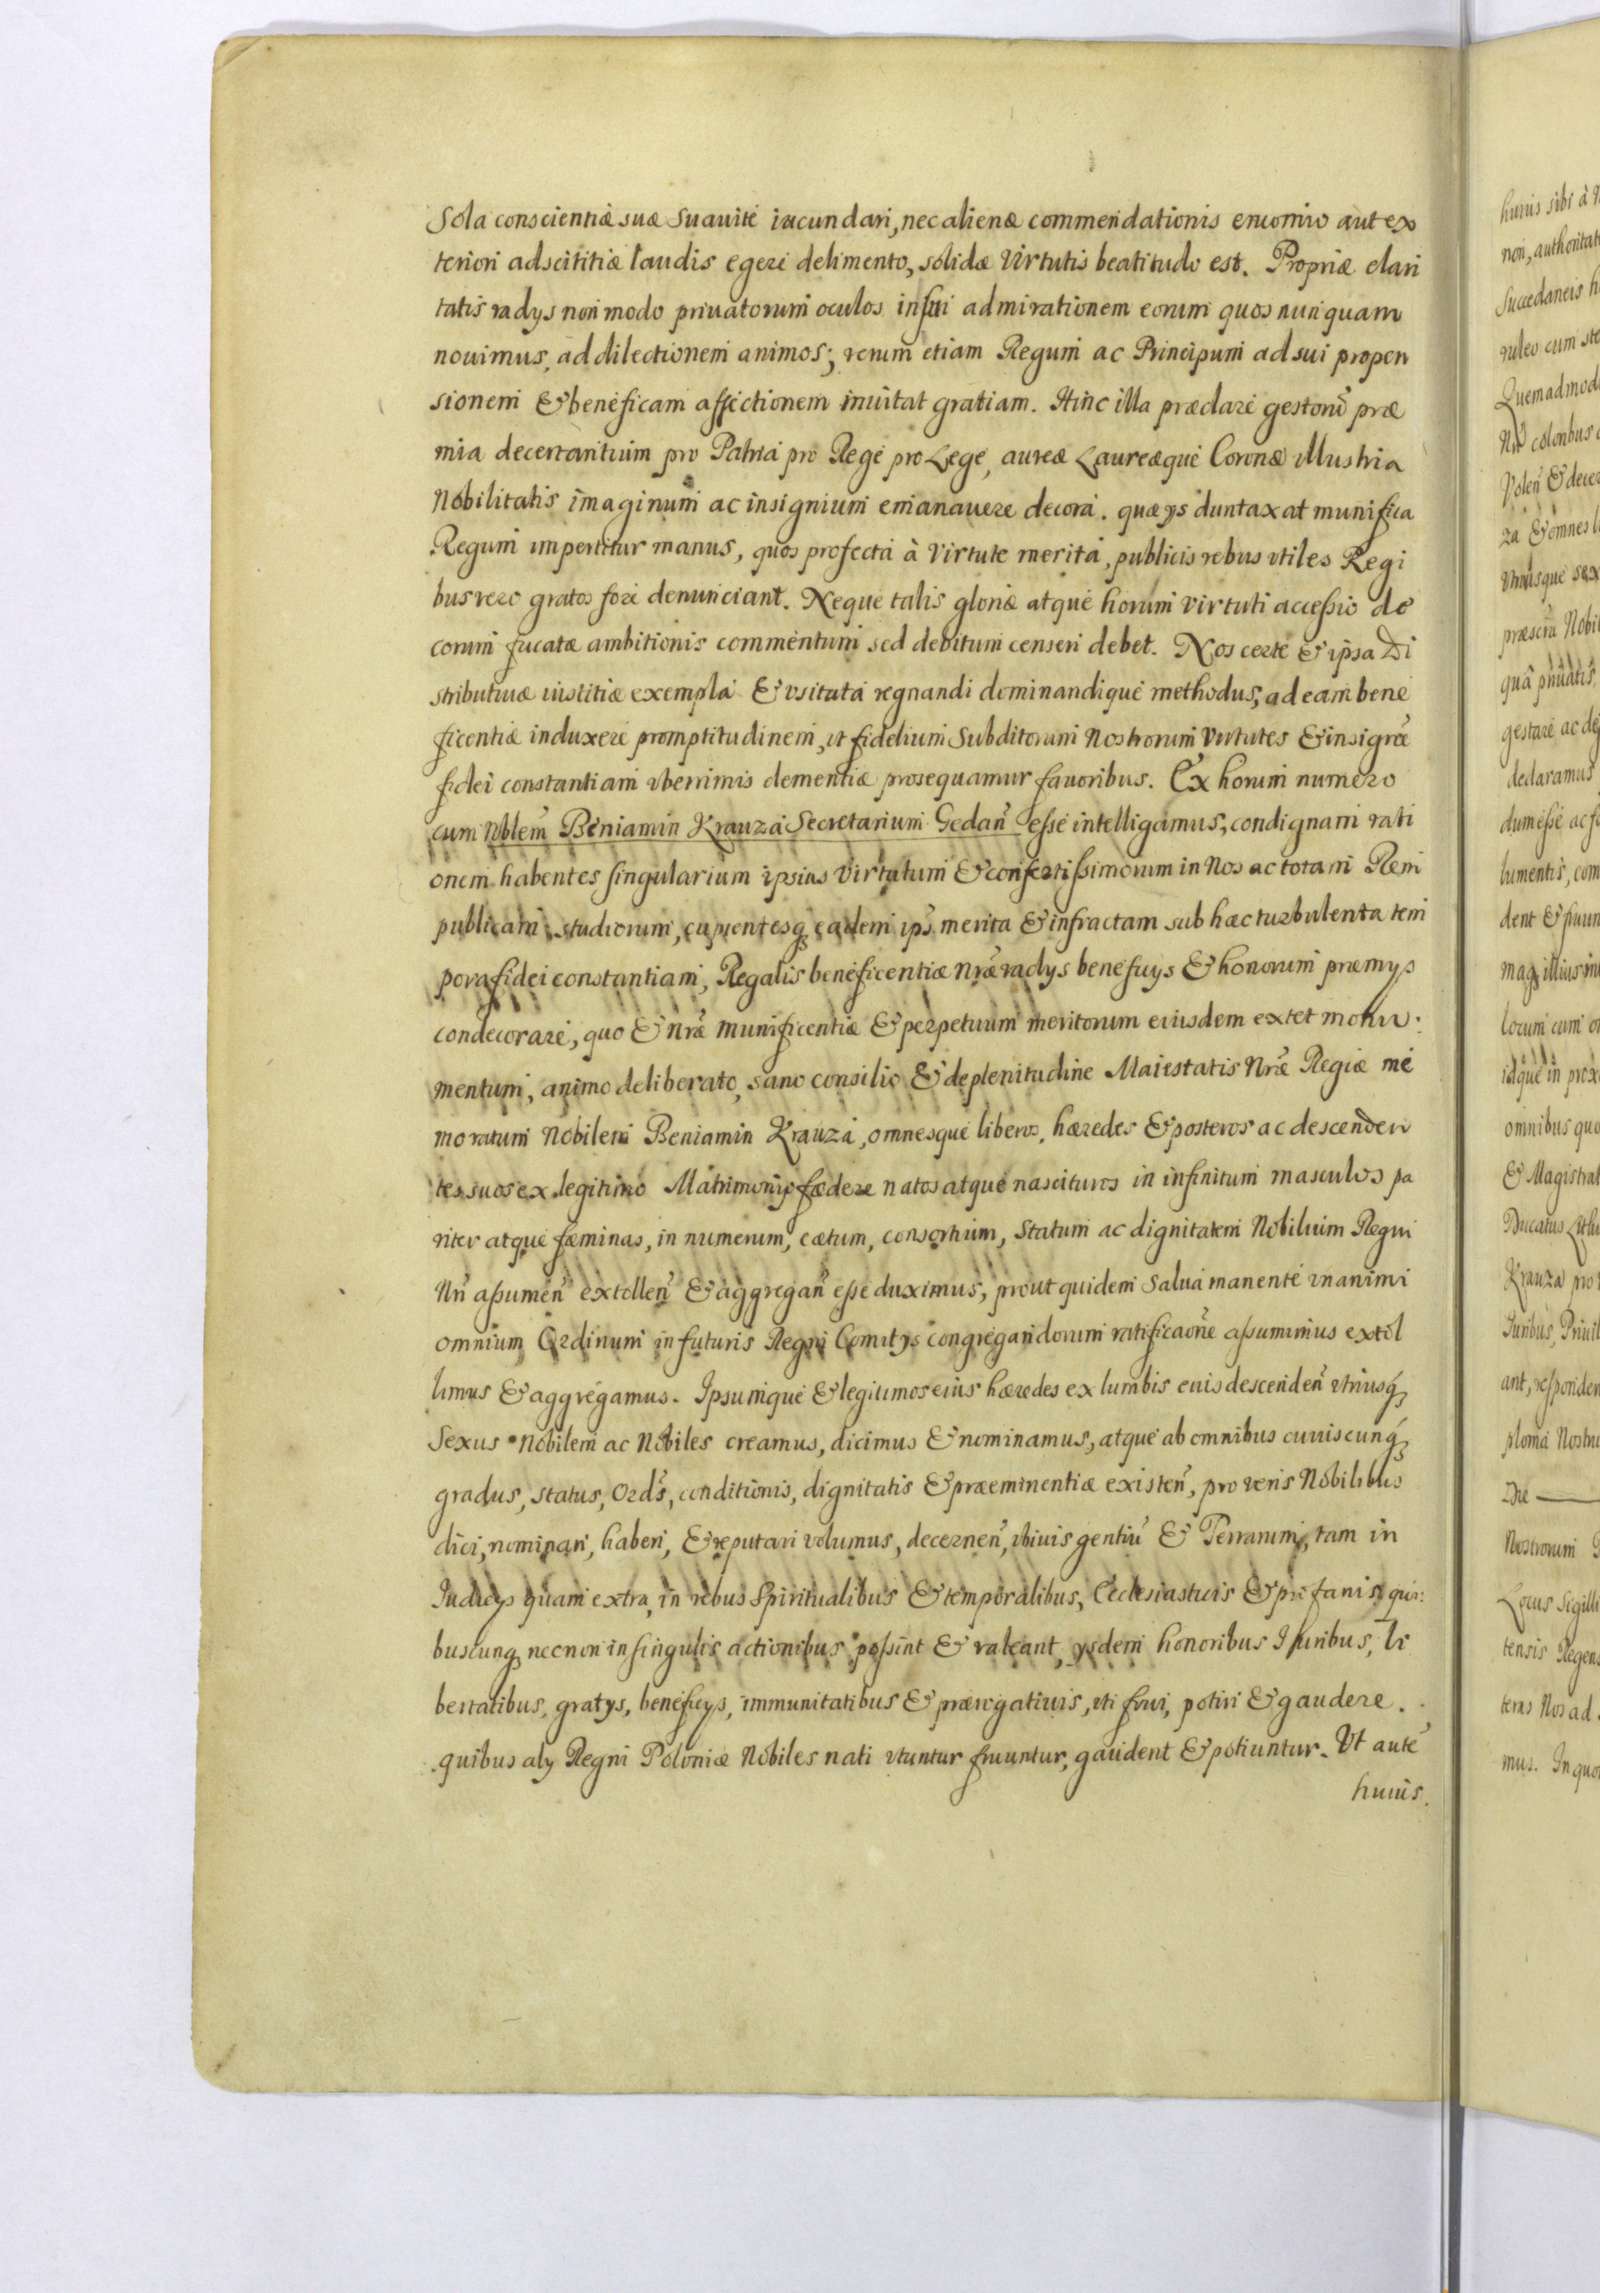 Sola conscientiæ suæ Suauite iucundari, nec alienæ commendationis encomio aut ex
teriori adscititiæ laudis egere delimento, solidæ Virtutis beatitudo est. Propriæ clari
tatis radys non modo priuatorum oculos in sui admirationem eorum quos nunquam
nouimus, ad dilectionem animos; verum etiam Regum ac Principum ad sui propen
sionem & beneficam affectionem inuitat gratiam. Hinc illa præclare gestorũ præ
mia decertantium pro Patria pro Rege pro Lege, aureæ Laureæque Coronæ illustria
Nobilitatis imaginum ac insignium emanauere decora. quæ ys duntaxat munifica
Regum impertitur manus, quos profecta à Virtute merita, publicis rebus vtiles Regi
bus vero gratos fore denunciant. Neque talis gloriæ atque horum Virtuti accessio de
corum fucatæ ambitionis commentum sed debitum censeri debet. Nos certe & ipsa Di
stributiuæ iustitiæ exempla & vsitata regnandi dominandique methodus, ad eam bene
ficentiæ induxere promptitudinem, vt fidelium Subditorum Nostrorum Virtutes & insignẽ
fidei constantiam vberrimis clementiæ prosequamur fauoribus. Ex horum numero
cum Noblem̃ Beniamin Krauza Secretarium Gedan̂ esse intelligamus, condignam rati
onem habentes singularium ipsius Virtutum & confertissimorum in Nos ac totam Rem
publicam studiorum, cupientesq eadem ips̃ merita & infractam sub hæc turbulenta tem
pora fidei constantiam, Regalis beneficentiæ nr̃æ radys beneficys & honorum præmys
condecorare, quo & nr̃æ munificentiæ & perpetuum meritorum eiusdem extet monu:
mentum, animo deliberato, sano consilio & de plenitudine Maiestatis Nr̃æ Regiæ me
moratum Nobilem Beniamin Krauza, omnesque liberos, hæredes & posteros ac descenden
tes suos ex legitimo Matrimony fœdere natos atque nascituros in infinitum masculos pa
riter atque fœminas, in numerum, cœtum, consortium, Statum ac dignitatem Nobilium Regni
Nr̃i assumen̂ extollen̂ & aggregan̂ esse duximus, prout quidem Salua manente vnanimi
omnium Ordinum in futuris Regni Comitys congregandorum ratificaõne assumimus extol
limus & aggregamus. Ipsumque & legitimos eius hæredes ex lumbis euis descenden̂ vtriusq
Sexus Nobilem ac Nobiles creamus, dicimus & nominamus, atque ab omnibus cuiuscunq
gradus, status, Ord̃s, conditionis, dignitatis & præeminentiæ existen̂, pro veris Nobilibus
dici, nominari, haberi, & reputari volumus, decernen̂, vbiuis gentiũ & Terrarum, tam in
Iudicys quam extra, in rebus Spiritualibus & temporalibus, Ecclesiasticis & profanis, qui:
buscunq necnon in singulis actionibus possint & valeant, ysdem honoribus Iuribus, li
bertatibus, gratys, beneficys, immunitatibus & prærogatiuis, vti frui, potiri & gaudere.
quibus aly Regni Poloniæ Nobiles nati vtuntur fruuntur, gaudent & potiuntur. Vt autẽ
huius.
huius sibi à
non, authoritat
Succedaneis
ruleo cum ste
Quemadmod
colonbus
Volen̂ & decer
za & omnes
vtriusque sex
Nobi
quâ priuatis,
gestare ac de
declaramus
dum esse ac
lumentis, com
dent &
mag illius
locum cum
idque in prox
omnibus quo
& Magistrat
Ducatus Lithu
Krauza pro
Iuribus, Priuil
ant, responden
ploma Nostru
Dñi
Nostrorum
Locus Sigilli
tensis Regens
Nos ad
mus. In quo